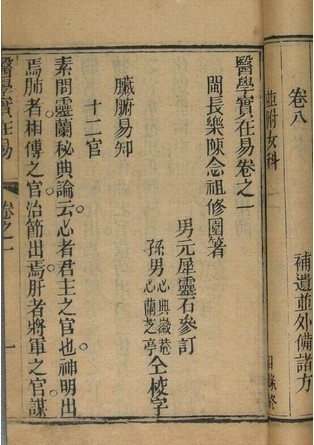 卷八
並附女科
補遺並外備諸方
目錄終
醫學實在易卷之一
閩長樂陳念祖修園著
男元犀靈石參訂
孫男心典徽菴
心蘭芝亭
仝校字
臟腑易知
十二官
素問靈蘭秘典論云心者君主之官也神明出
焉肺者相傅之官治節出焉肝者將軍之官謀
醫學實在易
卷之一
一